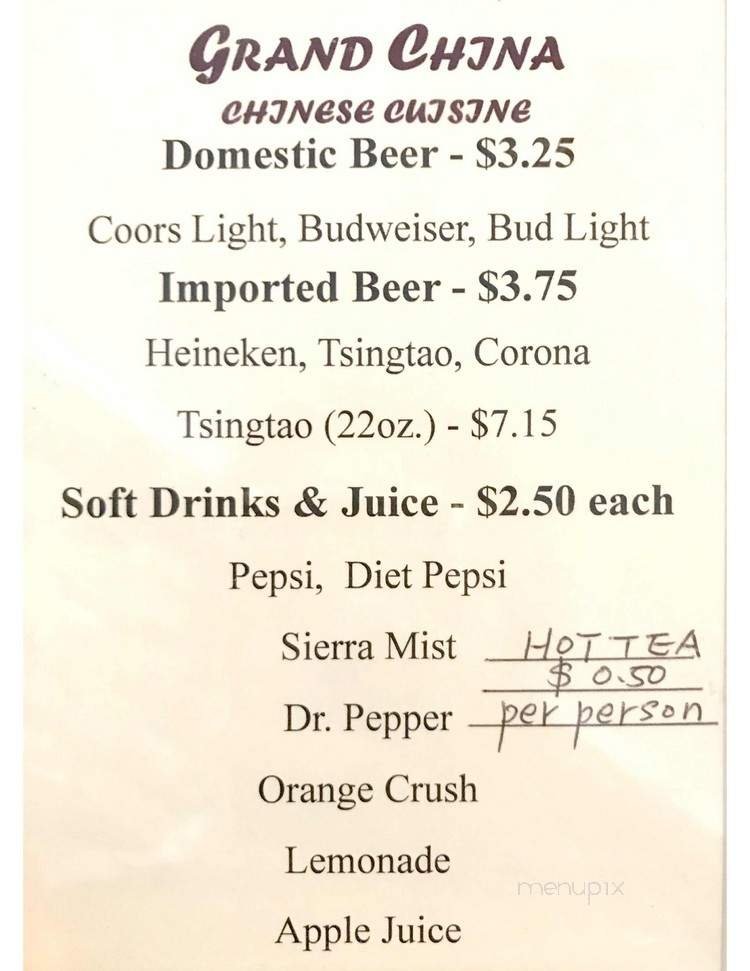 GRAND CHINA
CHINESE CUISINE
Domestic Beer - $3.25
Coors Light, Budweiser, Bud Light
Imported Beer - $3.75
Heineken, Tsingtao, Corona
Tsingtao (22oz.) - $7.15
Soft Drinks & Juice - $2.50 each
Pepsi, Diet Pepsi
Sierra Mist
HOT TEA
$ 0.50
per person
Dr. Pepper
Orange Crush
Lemonade
menupix
Apple Juice